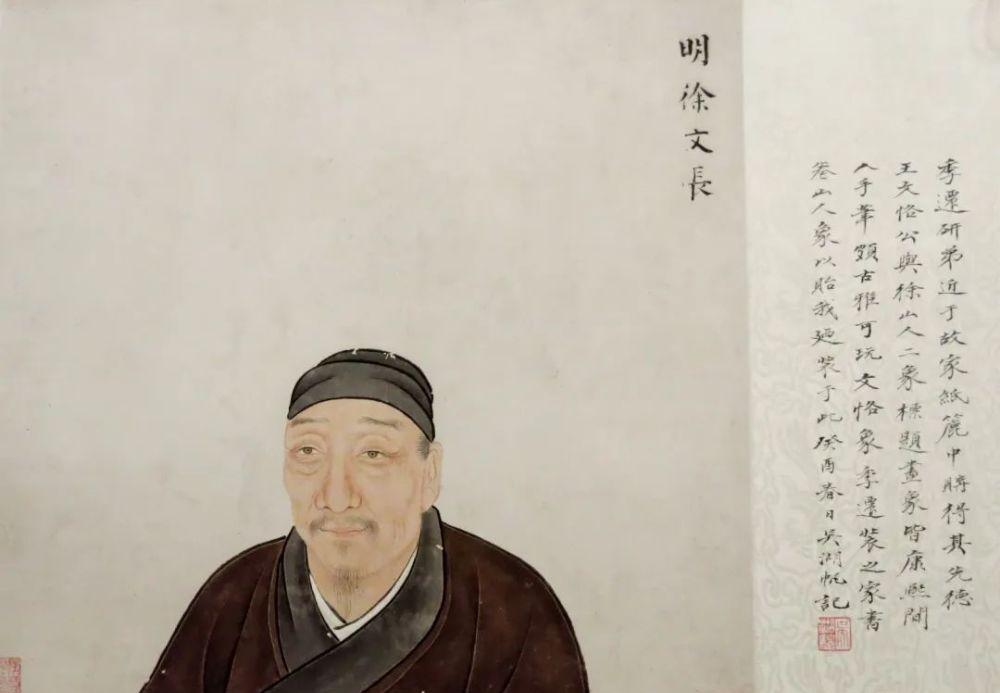 明徐文長
季遷研弟近于故家紙簏中購得其先德
王文恪公與徐山人二象標題畫象皆康熙間
人手筆頗古雅可玩文恪象季遷裝之家書
卷山人象以貽我廼裝于此癸酉春日吳湖帆記